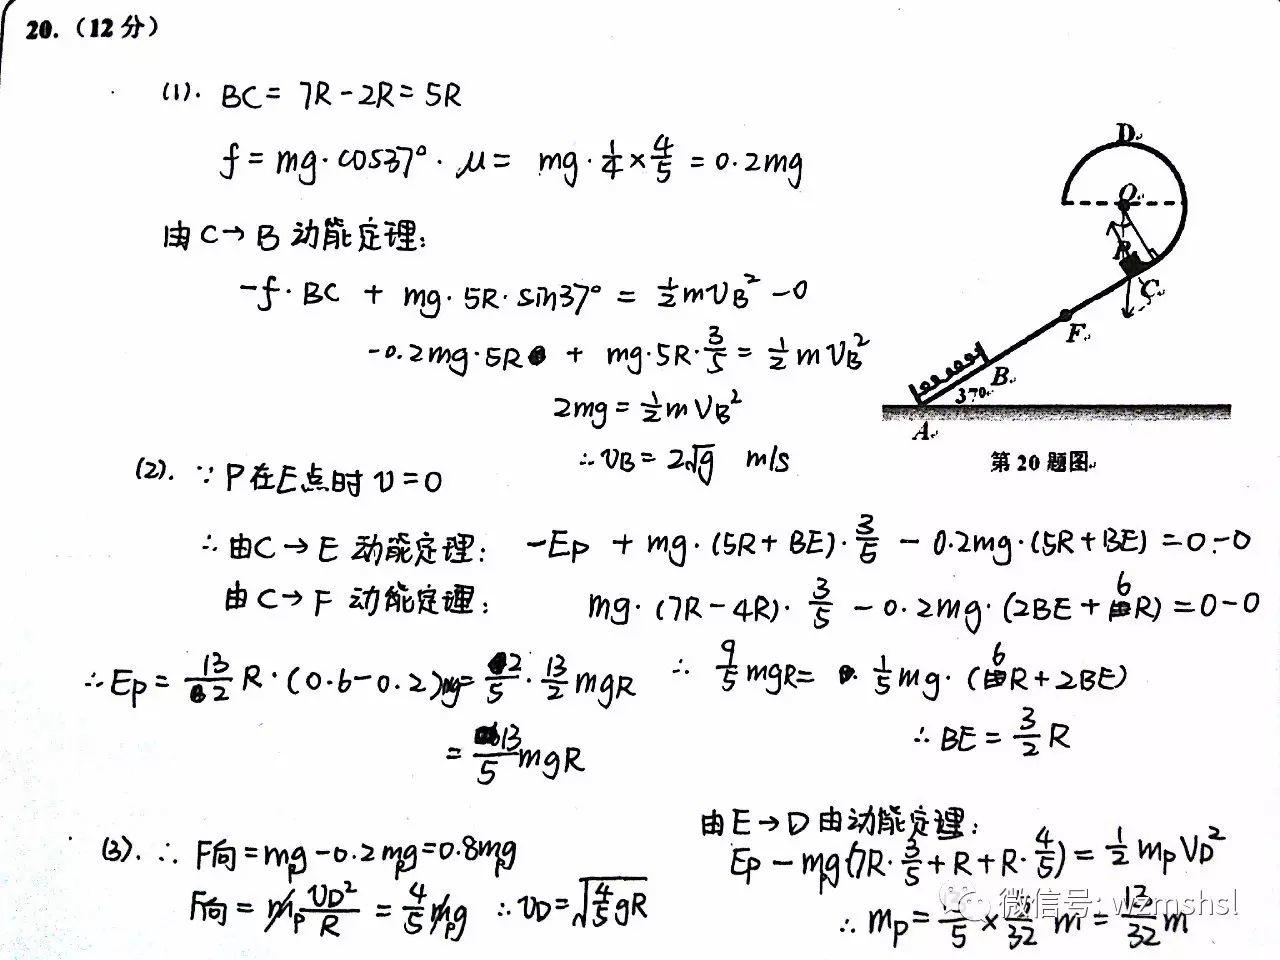 20.（12分）
(1). BC = 7R - 2R = 5R
f = mg·cos37°·μ = mg·1/4×4/5 = 0.2mg
由C→B动能定理:
-f·BC + mg·5R·sin37° = 1/2mVB² - 0
-0.2mg·5R + mg·5R·3/5 = 1/2mVB²
2mg = 1/2mVB²
∴VB = 2√g m/s
D
O
R
C
F
B
37°
A
第20题图
(2). ∵P在E点时v=0
∴由C→E动能定理: -Ep + mg·(5R+BE)·3/5 - 0.2mg·(5R+BE) = 0-0
由C→F动能定理: mg·(7R-4R)·3/5 - 0.2mg·(2BE+6R) = 0-0
∴ 9/5mgR = 1/5mg·(6R+2BE)
∴BE = 3/2R
∴Ep = 13/2R·(0.6-0.2)mg = 2/5·13/2mgR
= 13/5mgR
(3). ∴F向 = mpg - 0.2mpg = 0.8mpg
F向 = mpVD²/R = 4/5mpg ∴VD = √(4/5gR)
由E→D由动能定理:
Ep - mpg(7R·3/5+R+R·4/5) = 1/2mpVD²
∴mp = /5× /32 m = 13/32m
微信号: wzmshsl